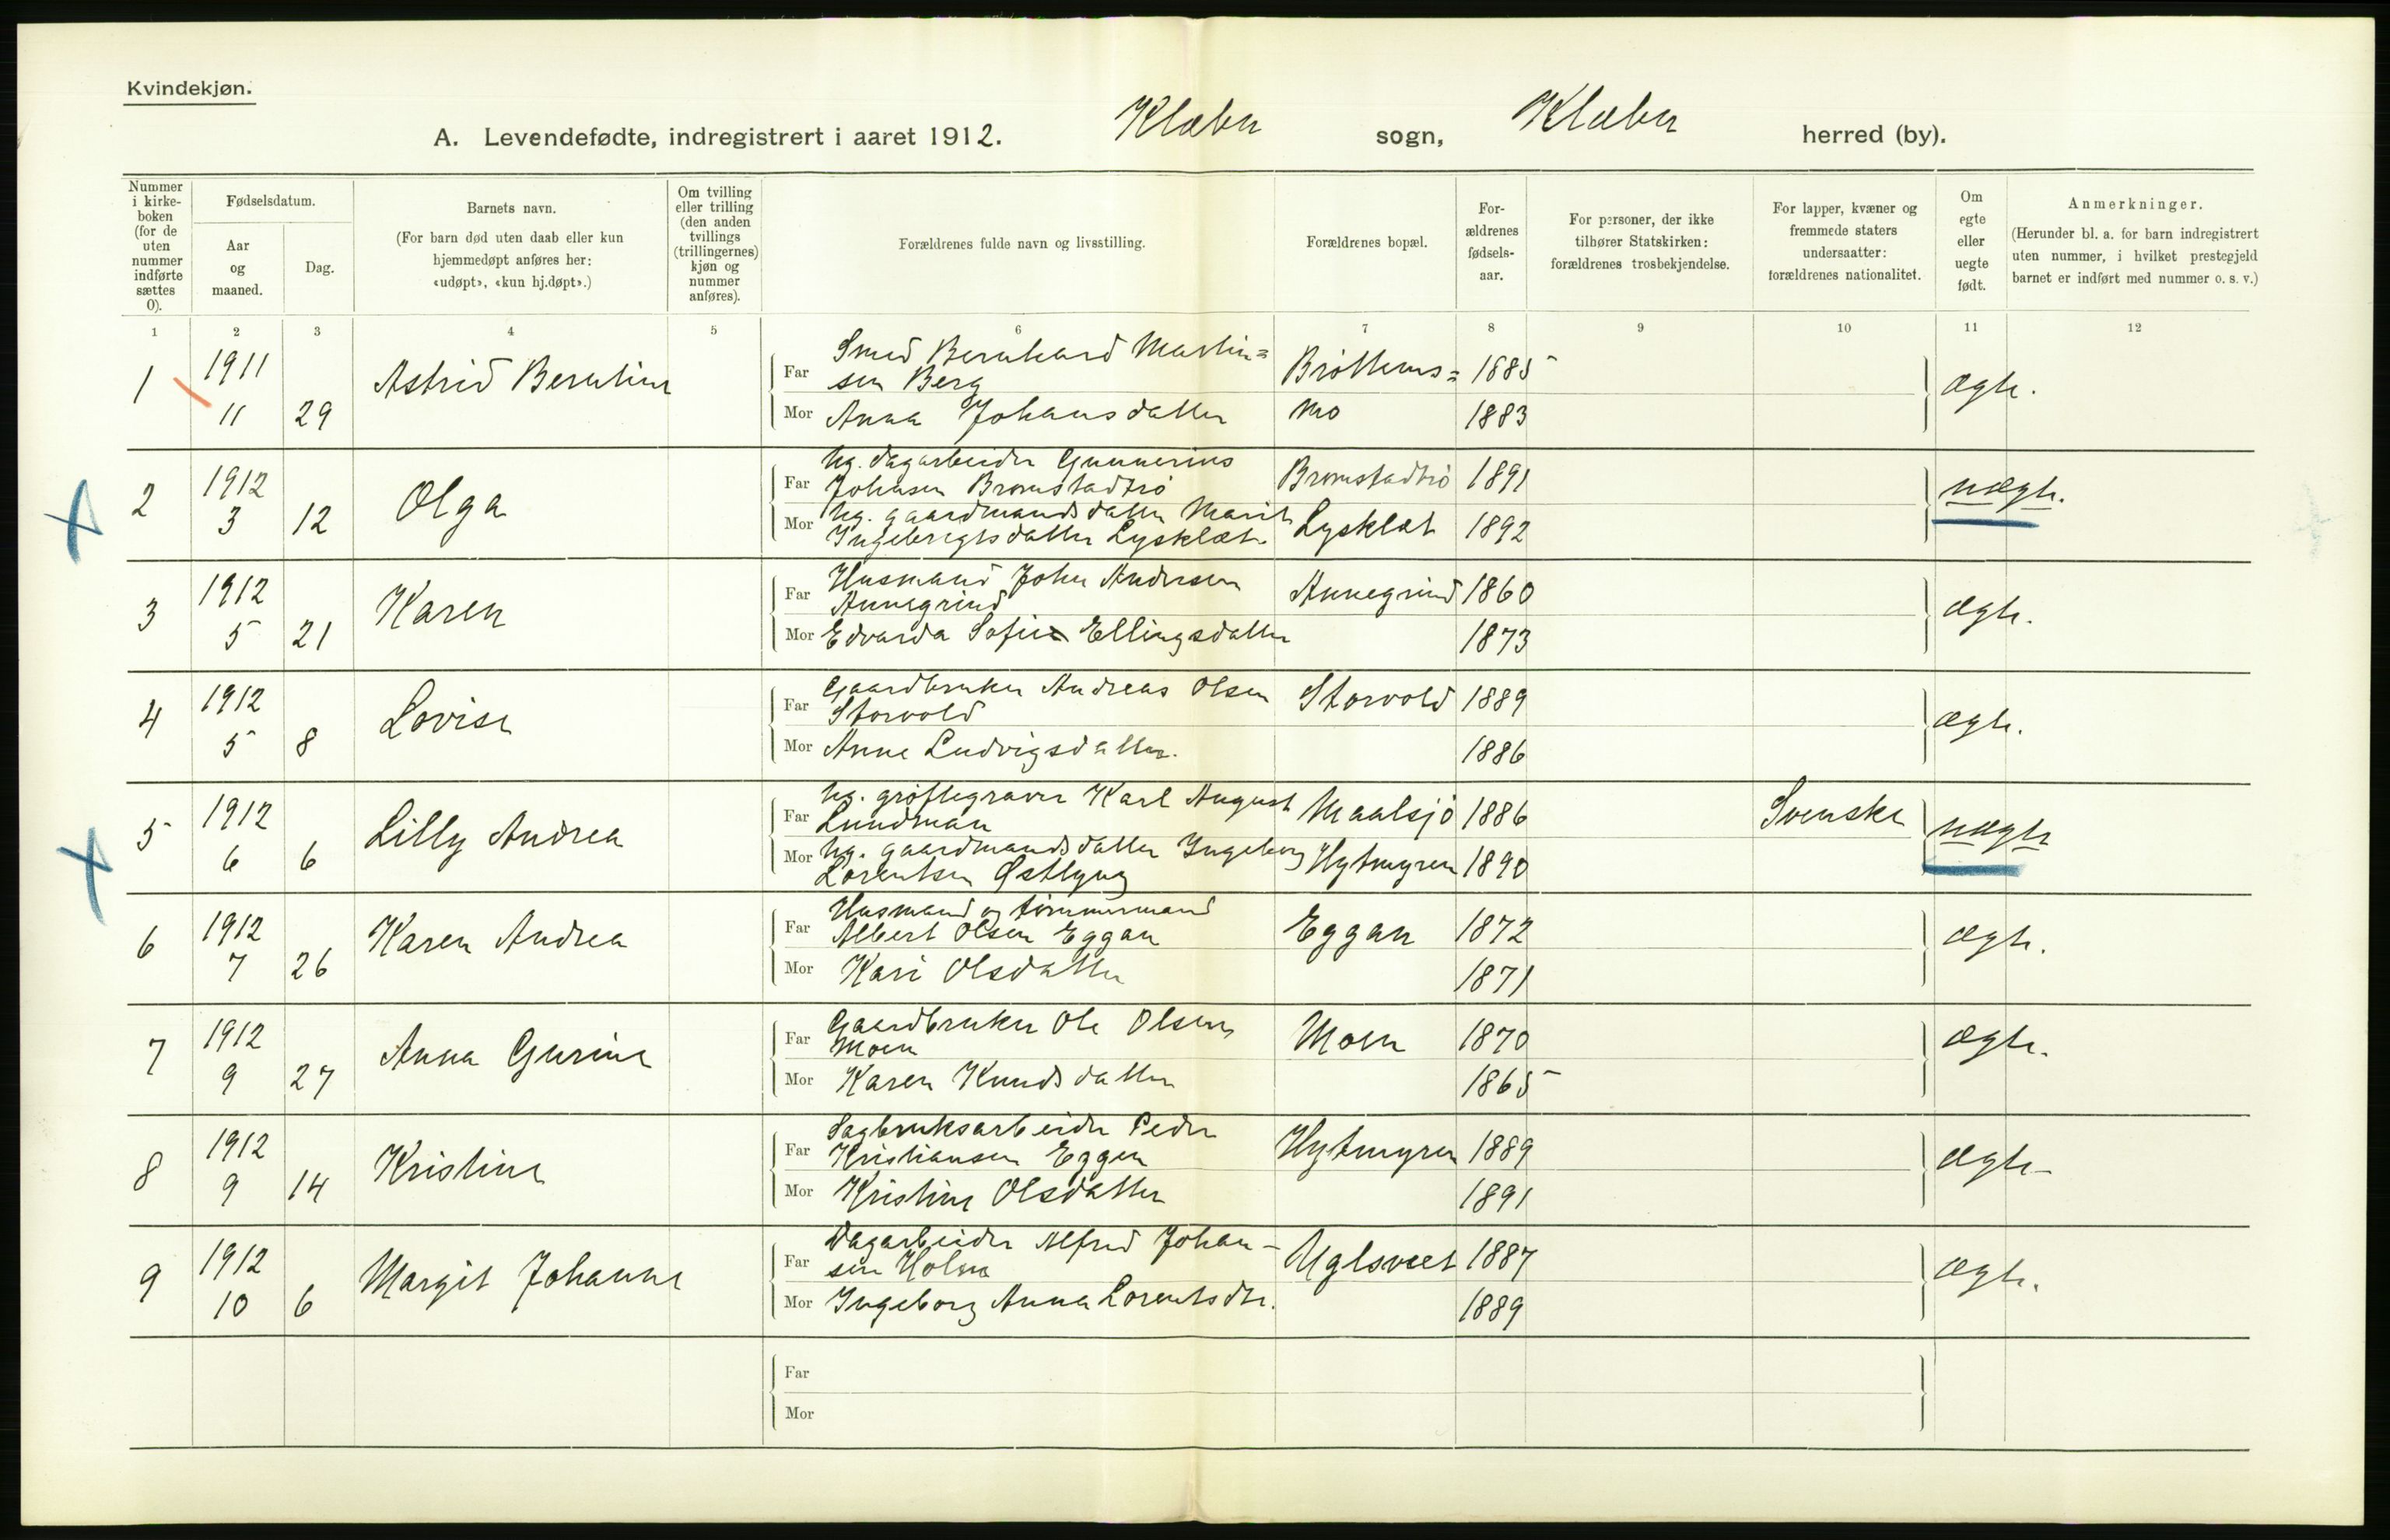 Kvindekjøn.
A. Levendefødte, indregistrert i aaret 1912. Klæbu sogn, Klæbu herred (by).
Nummer i kirke-boken (for de uten nummer indførte sættes 0).
Fødselsdatum.
Aar og maaned.
Dag.
Barnets navn.
(For barn død uten daab eller kun hjemmedøpt anføres her: «udøpt», «kun hj.døpt».)
Om tvilling eller trilling (den anden tvillings (trillingernes) kjøn og nummer anføres).
Forældrenes fulde navn og livsstilling.
Forældrenes bopæl.
For-ældrenes fødsels-aar.
For personer, der ikke tilhører Statskirken: forældrenes trosbekjendelse.
For lapper, kvæner og fremmede staters undersaatter: forældrenes nationalitet.
Om egte eller uegte født.
Anmerkninger.
(Herunder bl. a. for barn indregistrert uten nummer, i hvilket prestegjeld barnet er indført med nummer o. s. v.)
1 2 3 4 5 6 7 8 9 10 11 12
1 1911 11 29 Astrid Berntine
Far Smed Bernhard Martin=
sen Berg Brøttems= 1885 ægte.
Mor Anna Johansdatter mo 1883
2 1912 3 12 Olga
Far Ug. dagarbeider Gunnerius
Johnsen Bromstadtrø Bromstadtrø 1891 uægte.
Mor Ug. gaardmandsdatter Marit
Ingebrigtsdatter Lysklæt. Lysklæt 1892
3 1912 5 21 Karen
Far Husmand John Andersen
Annegrind Annegrind 1860 ægte.
Mor Edvarda Sofie Ellingsdatter 1873
4 1912 5 8 Lovise
Far Gaardbruker Andreas Olsen
Storvold Storvold 1889 ægte.
Mor Anne Ludvigsdatter. 1886
5 1912 6 6 Lilly Andrea
Far Ug. grøftegraver Karl August
Lundman Maalsjø 1886 Svenske uægte
Mor Ug. gaardmandsdatter Ingeborg
Lorentsen Østlyng Hytmyren 1890
6 1912 7 26 Karen Andrea
Far Husmand og tømmermand
Albert Olsen Eggan Eggan 1872 ægte.
Mor Kari Olsdatter 1871
7 1912 9 27 Anna Gurine
Far Gaardbruker Ole Olsen
Moen Moen 1870 ægte.
Mor Karen Knudsdatter 1865
8 1912 9 14 Kristine
Far Sagbruksarbeider Peder
Kristiansen Eggen Hytmyren 1889 ægte
Mor Kristine Olsdatter 1891
9 1912 10 6 Margit Johanne
Far Dagarbeider Alfred Johan-
sen Holm Uglsveet 1887 ægte.
Mor Ingeborg Anna Lorentsdtr. 1889
Far
Mor